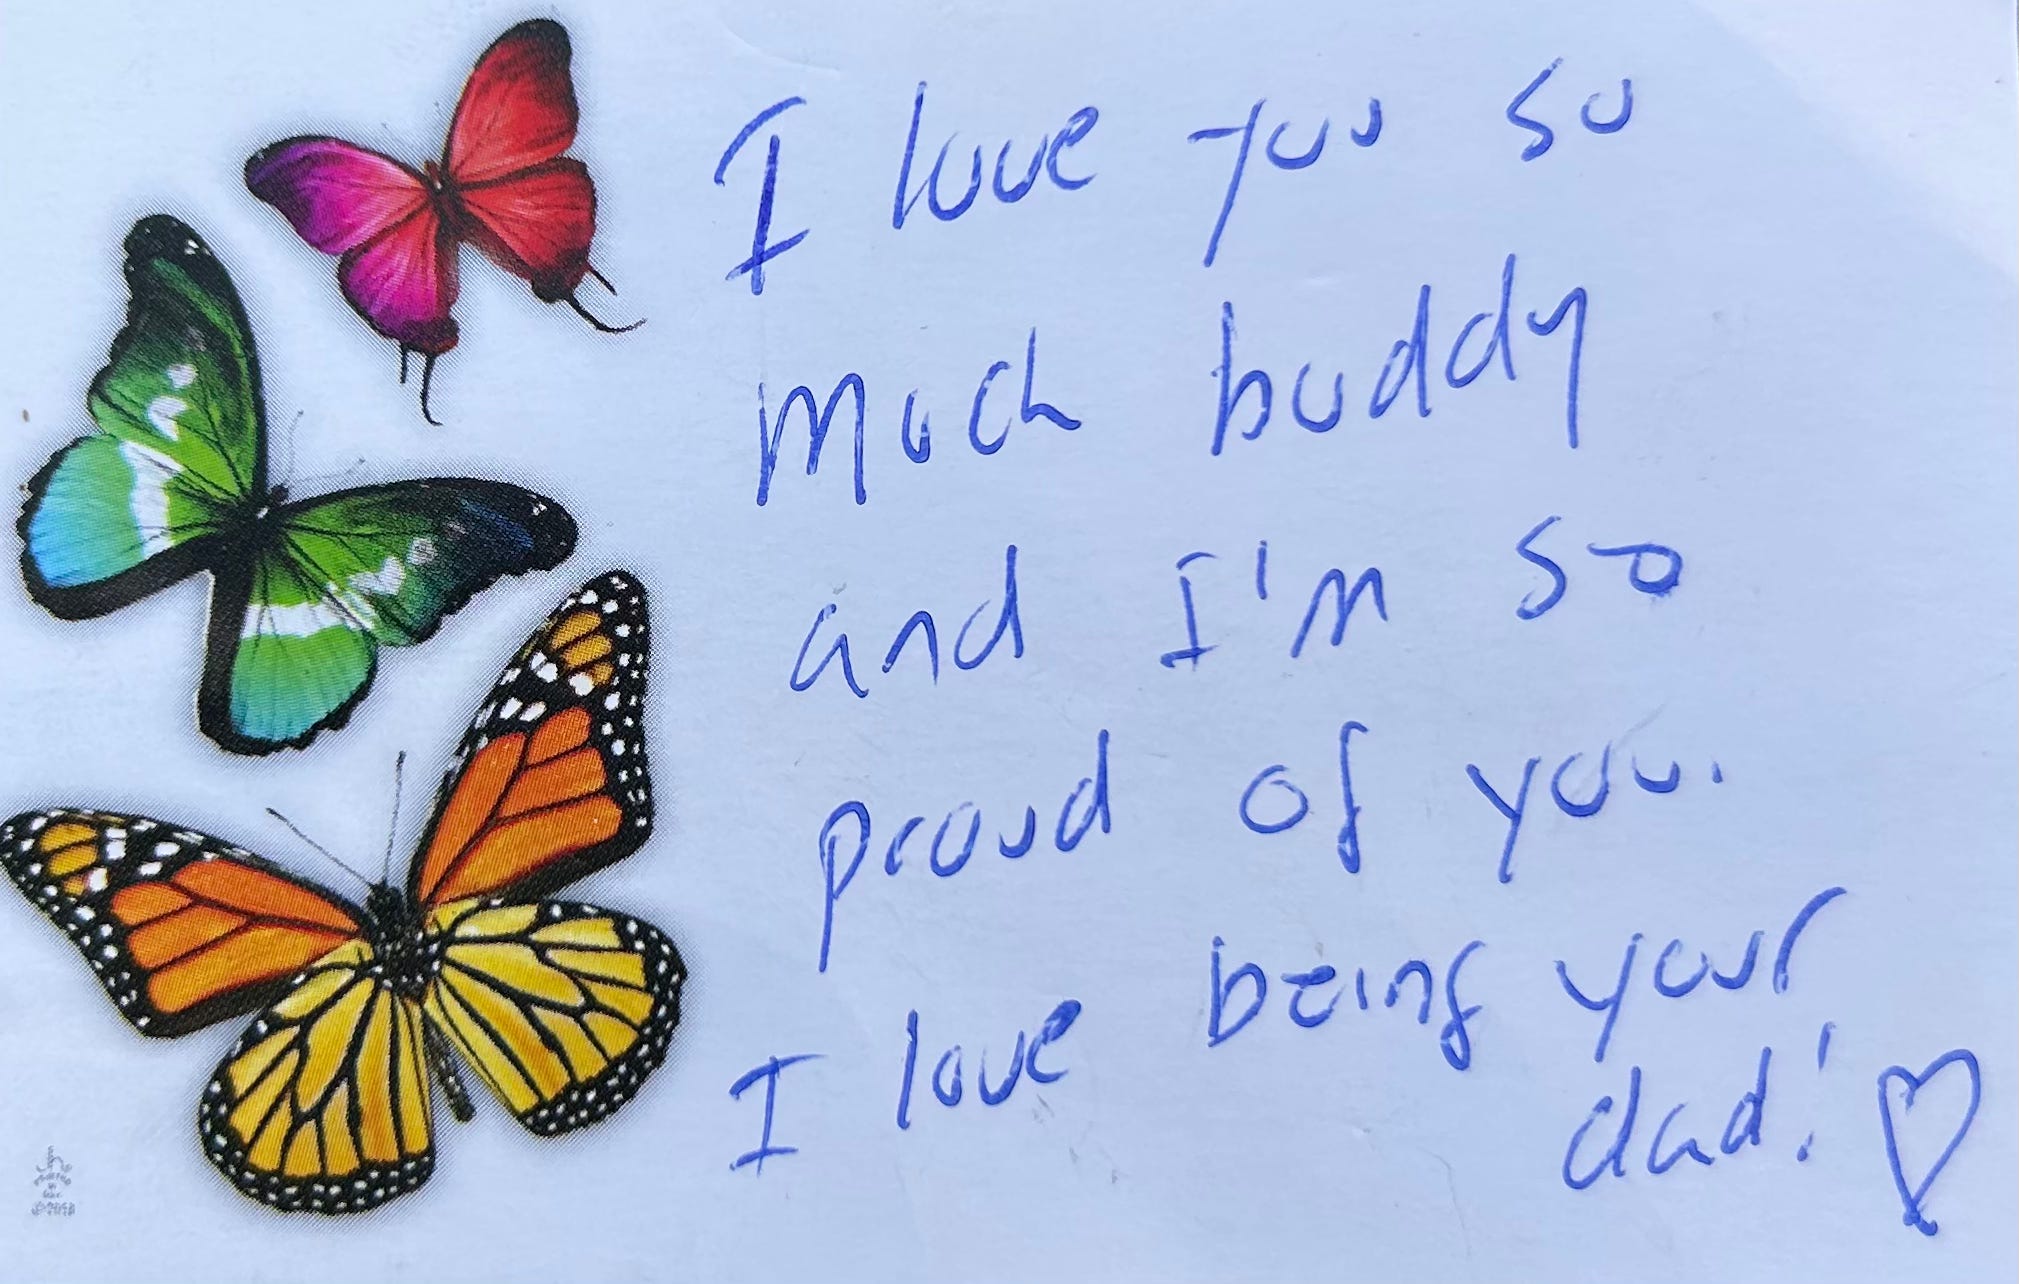 I love you so
much buddy
and I'm so
proud of you.
I love being your
dad! ♡